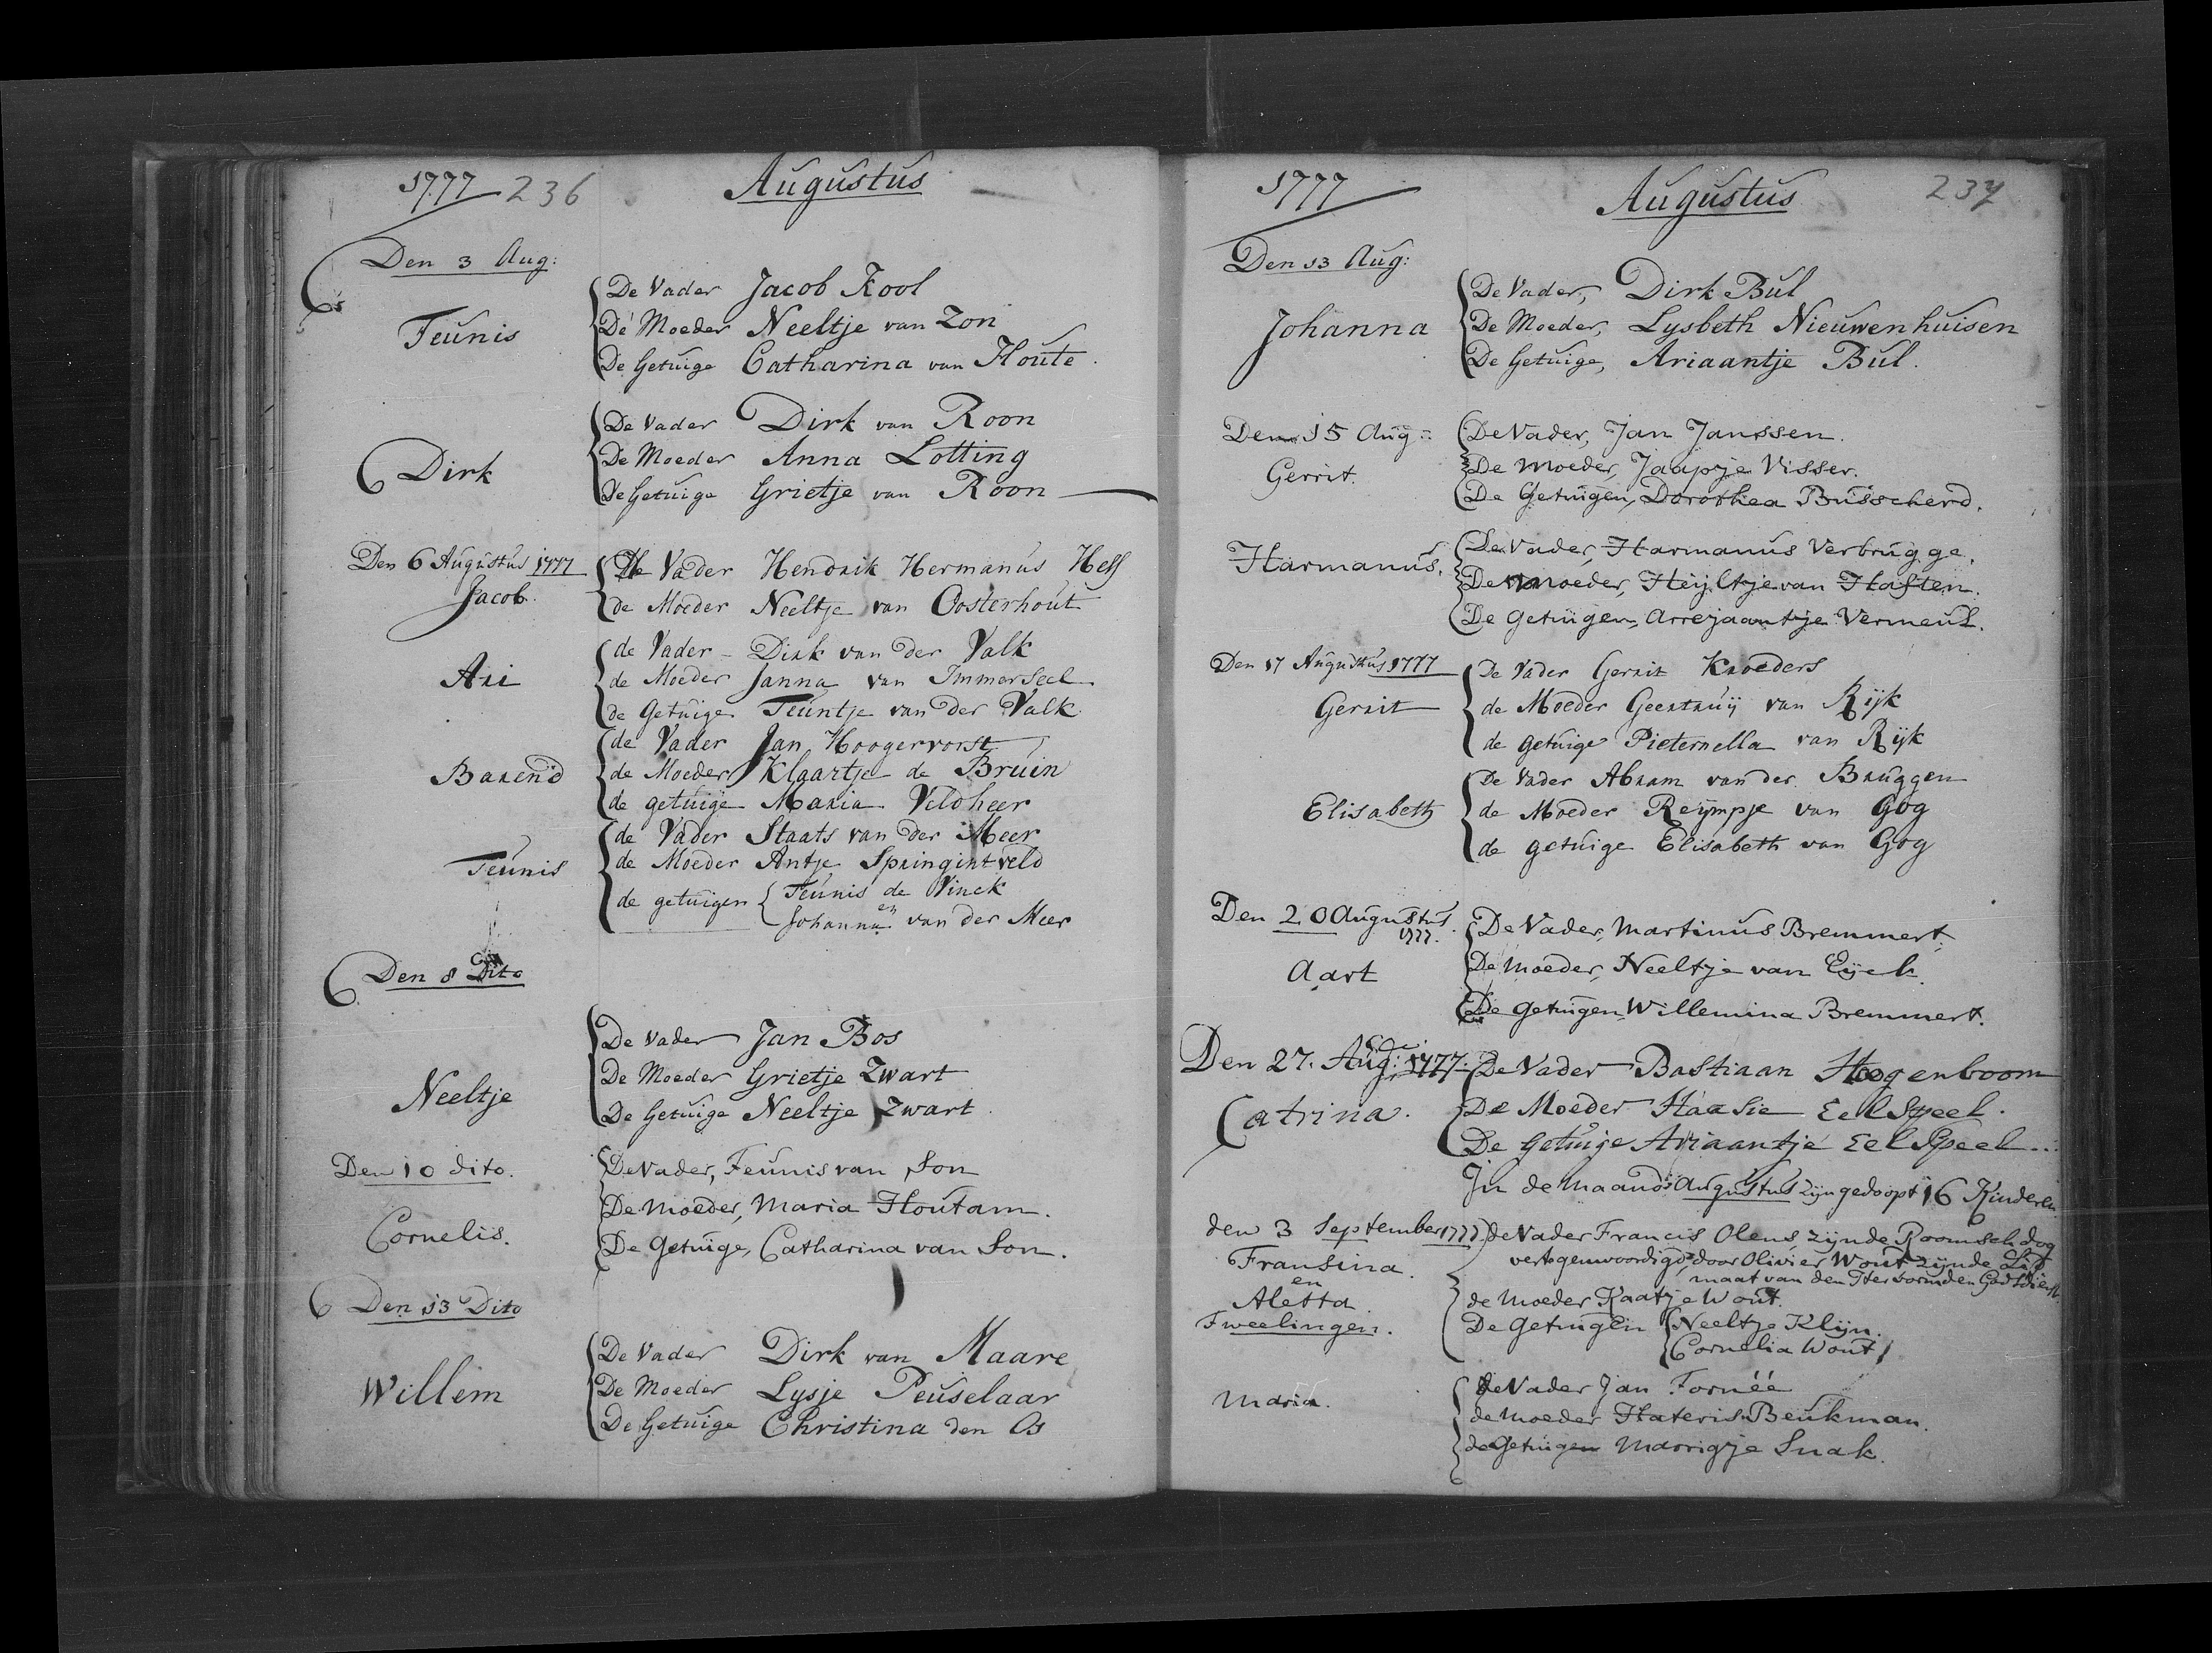 1777 236 Augustus
Den 3 Aug:
De Vader Jacob Kool
Teunis De Moeder Neeltje van Zon
De Getuige Catharina van Houte.
De Vader Dirk van Roon
Dirk De Moeder Anna Lotting
De Getuige Grietje van Roon
Den 6 Augustus 1777 De Vader Hendrik Hermanus Hess
Jacob. de Moeder Neeltje van Oosterhout
de Vader - Dirk van der Valk
Ari de Moeder Janna van Immerseel
de Getuige Teuntje van der Valk
de Vader Jan Hoogervorst
Barend de Moeder Klaartje de Bruin
de getuige Maria Veldheer
de Vader Staats van der Meer
Teunis de Moeder Antje Springintveld
de getuigen Teunis de Vinck
en
Johanna van der Meer
Den 8 Dito
De Vader Jan Bos
Neeltje De Moeder Grietje Zwart
De Getuige Neeltje Zwart
Den 10 dito. De Vader, Teunis van Son
De Moeder, Maria Houtam.
Cornelis. De Getuige, Catharina van Son.
Den 13 Dito
De Vader Dirk van Maare
Willem De Moeder Lysje Peuselaar
De Getuige Christina den Os
1777 Augustus 237
Den 13 Aug:
De Vader, Dirk Bul
Johanna De Moeder, Lysbeth Nieuwenhuisen
De Getuige, Ariaantje Bul.
Den 15 Aug: De Vader, Jan Janssen.
Gerrit. De Moeder, Jaapje Visser.
De Getuigen, Dorothea Busscherd.
De Vader, Harmanus Verbrugge.
Harmanus. De Moeder, Heijltje van Haften.
De Getuigen, Arrejaantje Vermeul.
Den 17 Augustus 1777 De Vader Gerrit Kroeders
Gerrit de Moeder Geertruij van Rijk
de getuige Pieternella van Rijk
De Vader Abram van der Bruggen
Elisabeth de Moeder Reijmpje van Gog
de getuige Elisabeth van Gog
Den 20 Augustus. De Vader, Martinus Bremmert.
1777.
Aart De Moeder, Neeltje van Eijck.
De Getuigen, Willemina Bremmert.
Den 27. Aug: 1777. De Vader Bastiaan Hoogenboom
Catrina. De Moeder Haasie Eelspeel.
De Getuige Ariaantje Eelspeel..
In de Maand Augustus zijn gedoopt 16 Kinderen
den 3 September 1777. de Vader Francis Olens zijnde Roomsch dog
Fransina. vertegenwoordigd door Olivier Wout zijnde Lid
en maat van den Hervormden Godtdienst.
Aletta. de Moeder Kaatje Wout.
Tweelingen. De Getuigen Neeltje Klijn.
Cornelia Wout
de Vader Jan Fornéé
Maria. de Moeder Hateris Beukman.
de Getuigen Marrigje Snak.